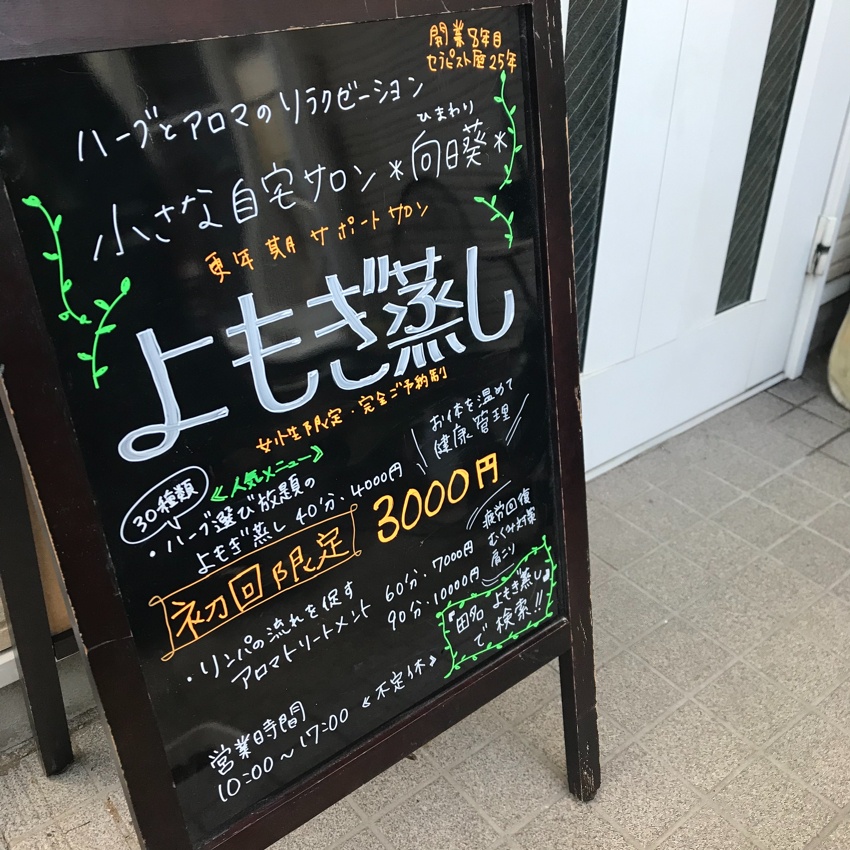 開業8年目
セラピスト歴25年
ハーブとアロマのリラクゼーション
ひまわり
小さな自宅サロン*向日葵*
更年期サポートサロン
よもぎ蒸し
女性限定・完全ご予約制
お体を温めて
健康管理
30種類
《人気メニュー》
・ハーブ選び放題の
よもぎ蒸し 40分・4000円
初回限定 3000円
疲労回復
むくみ対策
肩こり
・リンパの流れを促す
アロマトリートメント
60分・7000円
90分・10000円
『田名 よもぎ蒸し』
で検索!!
営業時間
10:00〜17:00 《不定休》